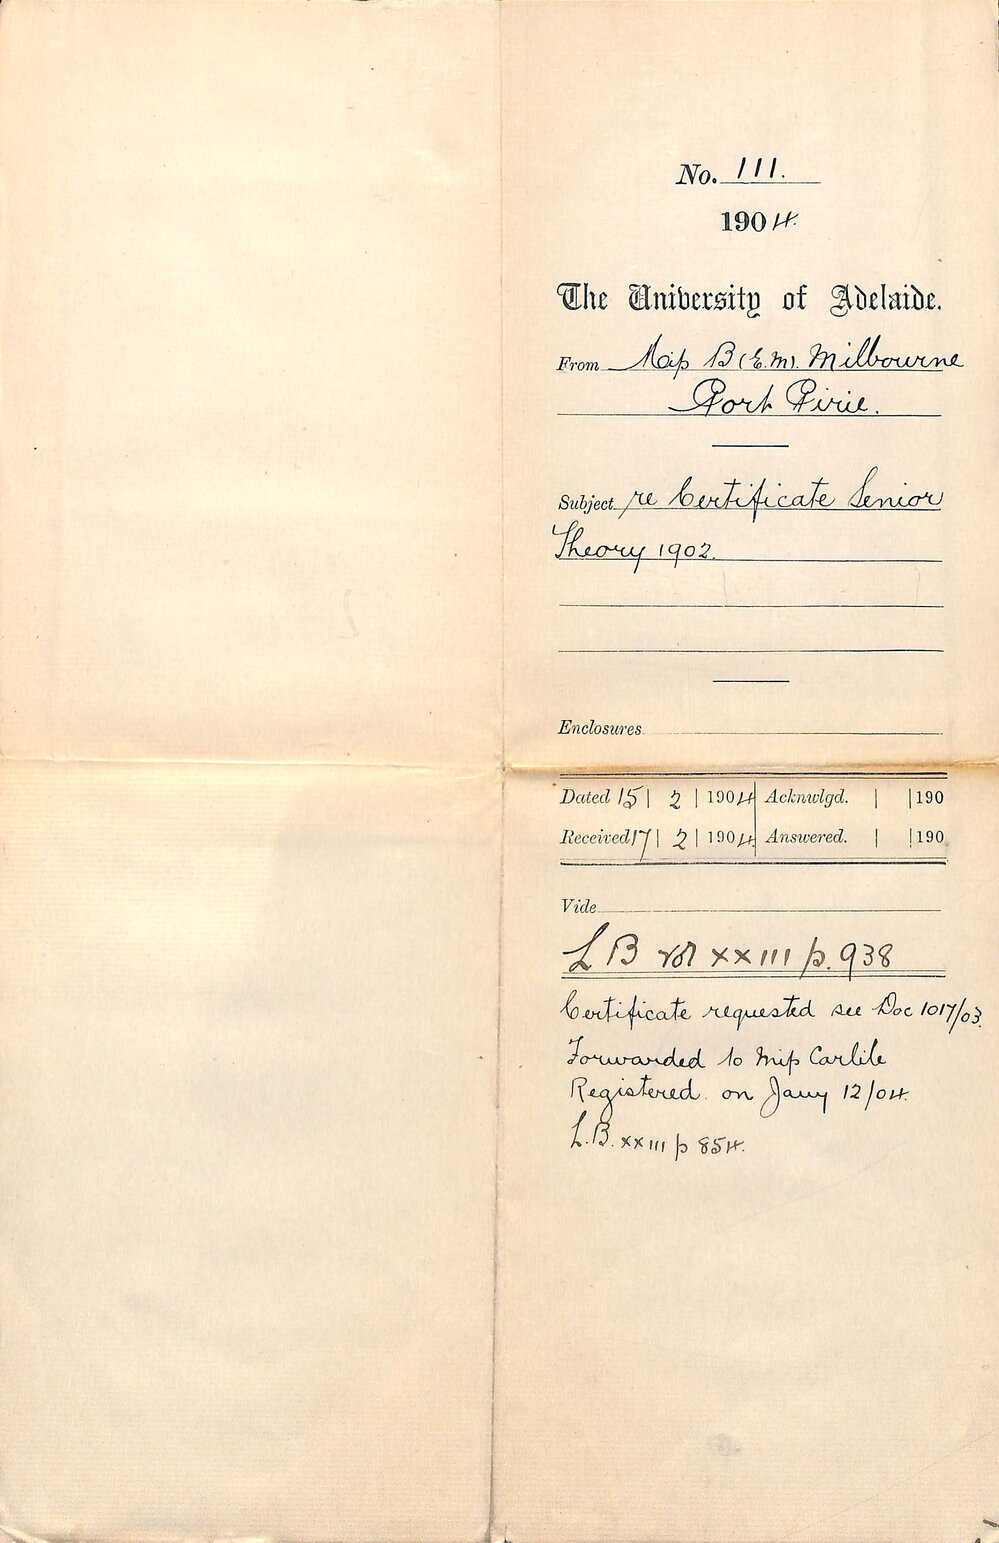 No. 111.
1904.
The University of Adelaide.
From Miss B (E.M). Milbourne
Port Pirie.
Subject re Certificate Senior
Theory 1902.
Enclosures
Dated 15 | 2 | 1904 Acknwlgd. | | 190
Received 17 | 2 | 1904. Answered. | | 190
Vide
L B vol XXIII p. 938
Certificate requested see Doc 1017/03.
Forwarded to Miss Carlile
Registered. on Jany 12/04.
L.B. XXIII p 854.